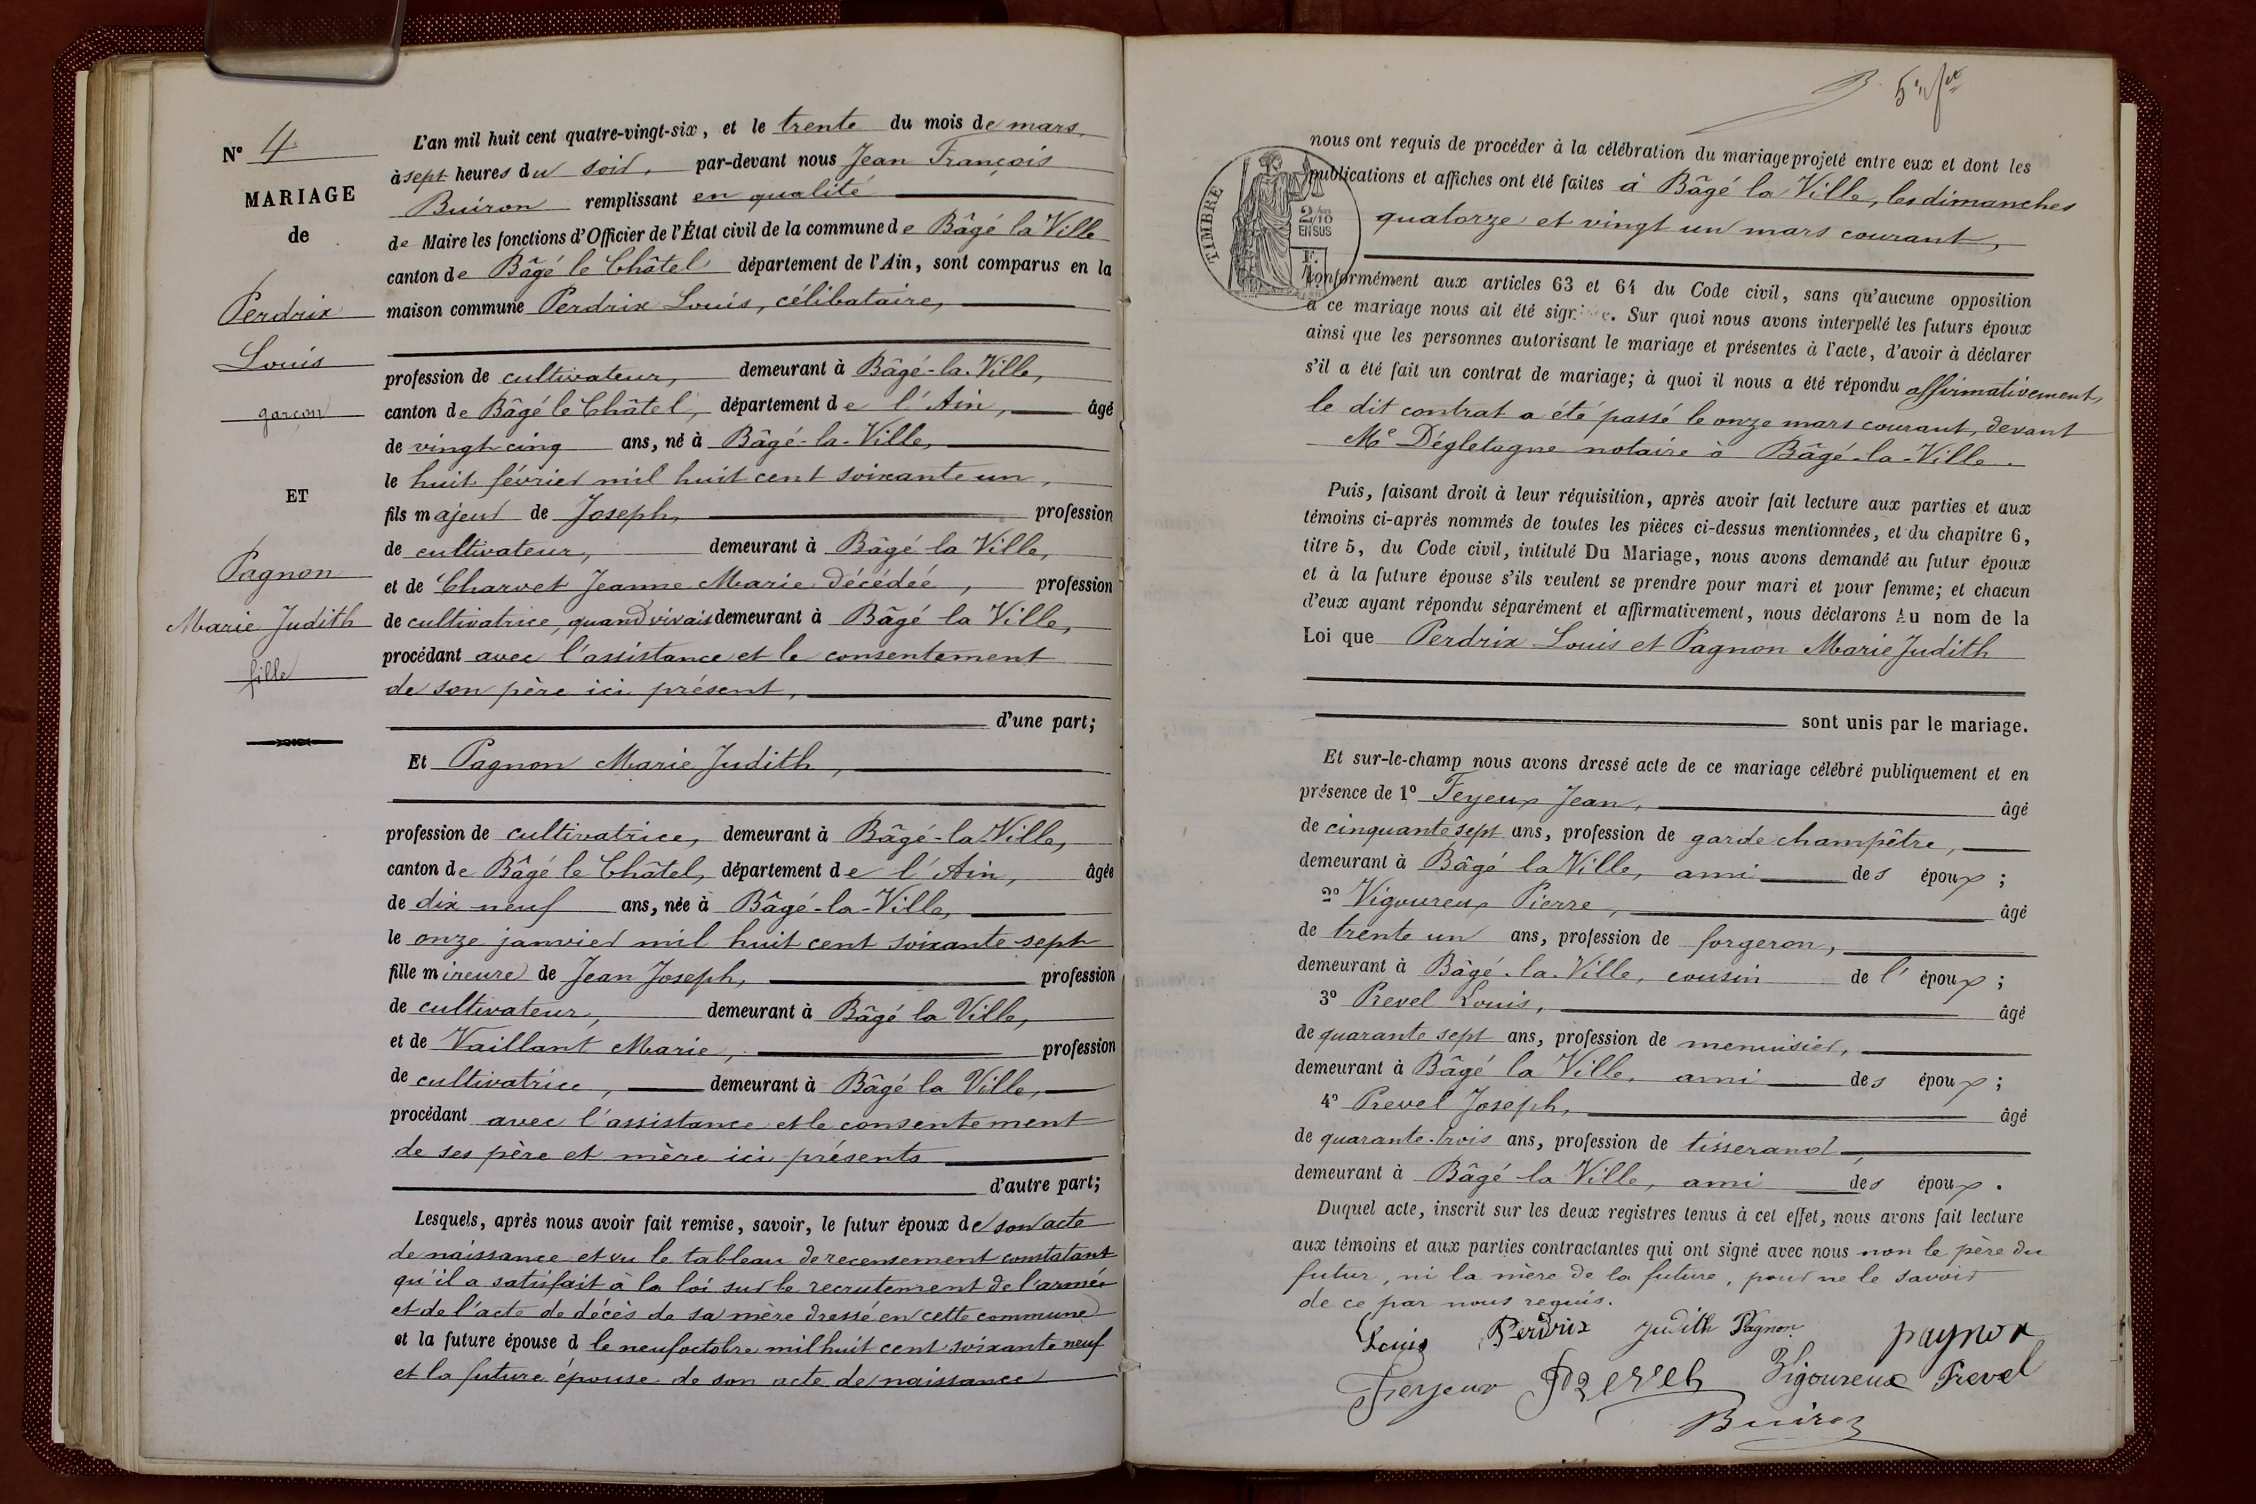 N° 4
MARIAGE
de
Perdrix
Louis
garçon
ET
Pagnon
Marie Judith
fille
L'an mil huit cent quatre-vingt-six, et le trente du mois de mars
à sept heures du soir, par-devant nous Jean François
Buiron remplissant en qualité
de Maire les fonctions d'Officier de l'État civil de la commune de Bâgé la Ville
canton de Bâgé le Châtel département de l'Ain, sont comparus en la
maison commune Perdrix Louis, célibataire,
profession de cultivateur, demeurant à Bâgé-la-Ville,
canton de Bâgé le Châtel, département de l'Ain, âgé
de vingt-cinq ans, né à Bâgé-la-Ville,
le huit février mil huit cent soixante un,
fils majeur de Joseph, profession
de cultivateur, demeurant à Bâgé la Ville,
et de Charvet Jeanne Marie décédée, profession
de cultivatrice, quand vivais demeurant à Bâgé la Ville,
procédant avec l'assistance et le consentement
de son père ici présent,
d'une part;
Et Pagnon Marie Judith,
profession de cultivatrice, demeurant à Bâgé-la-Ville,
canton de Bâgé le Châtel, département de l'Ain, âgée
de dix neuf ans, née à Bâgé-la-Ville,
le onze janvier mil huit cent soixante sept
fille mineure de Jean Joseph, profession
de cultivateur, demeurant à Bâgé la Ville,
et de Vaillant Marie, profession
de cultivatrice, demeurant à Bâgé la Ville,
procédant avec l'assistance et le consentement
de ses père et mère ici présents
d'autre part;
Lesquels, après nous avoir fait remise, savoir, le futur époux de son acte
de naissance et vu le tableau de recensement constatant
qu'il a satisfait à la loi sur le recrutement de l'armée
et de l'acte de décès de sa mère dressé en cette commune
et la future épouse d le neuf octobre mil huit cent soixante neuf
et la future épouse de son acte de naissance
nous ont requis de procéder à la célébration du mariage projeté entre eux et dont les
publications et affiches ont été faites à Bâgé la Ville, les dimanches
quatorze et vingt un mars courant,
TIMBRE
2/10
EN SUS
conformément aux articles 63 et 64 du Code civil, sans qu'aucune opposition
à ce mariage nous ait été signifiée. Sur quoi nous avons interpellé les futurs époux
ainsi que les personnes autorisant le mariage et présentes à l'acte, d'avoir à déclarer
s'il a été fait un contrat de mariage; à quoi il nous a été répondu affirmativement,
le dit contrat a été passé le onze mars courant, devant
Me Dégletagne notaire à Bâgé-la-Ville.
Puis, faisant droit à leur réquisition, après avoir fait lecture aux parties et aux
témoins ci-après nommés de toutes les pièces ci-dessus mentionnées, et du chapitre 6,
titre 5, du Code civil, intitulé Du Mariage, nous avons demandé au futur époux
et à la future épouse s'ils veulent se prendre pour mari et pour femme; et chacun
d'eux ayant répondu séparément et affirmativement, nous déclarons Au nom de la
Loi que Perdrix Louis et Pagnon Marie Judith
sont unis par le mariage.
Et sur-le-champ nous avons dressé acte de ce mariage célébré publiquement et en
présence de 1° Feyeux Jean, âgé
de cinquante sept ans, profession de garde champêtre,
demeurant à Bâgé la Ville, ami des époux;
2° Vigoureux Pierre, âgé
de trente un ans, profession de forgeron,
demeurant à Bâgé-la-Ville, cousin de l'époux;
3° Prevel Louis, âgé
de quarante sept ans, profession de menuisier,
demeurant à Bâgé la Ville, ami des époux;
4° Prevel Joseph, âgé
de quarante-trois ans, profession de tisserand,
demeurant à Bâgé la Ville, ami des époux.
Duquel acte, inscrit sur les deux registres tenus à cet effet, nous avons fait lecture
aux témoins et aux parties contractantes qui ont signé avec nous non le père du
futur, ni la mère de la future, pour ne le savoir
de ce par nous requis.
Louis Perdrix Judith Pagnon pagnon
Feyeux Prevel Vigoureux Prevel
Buiron